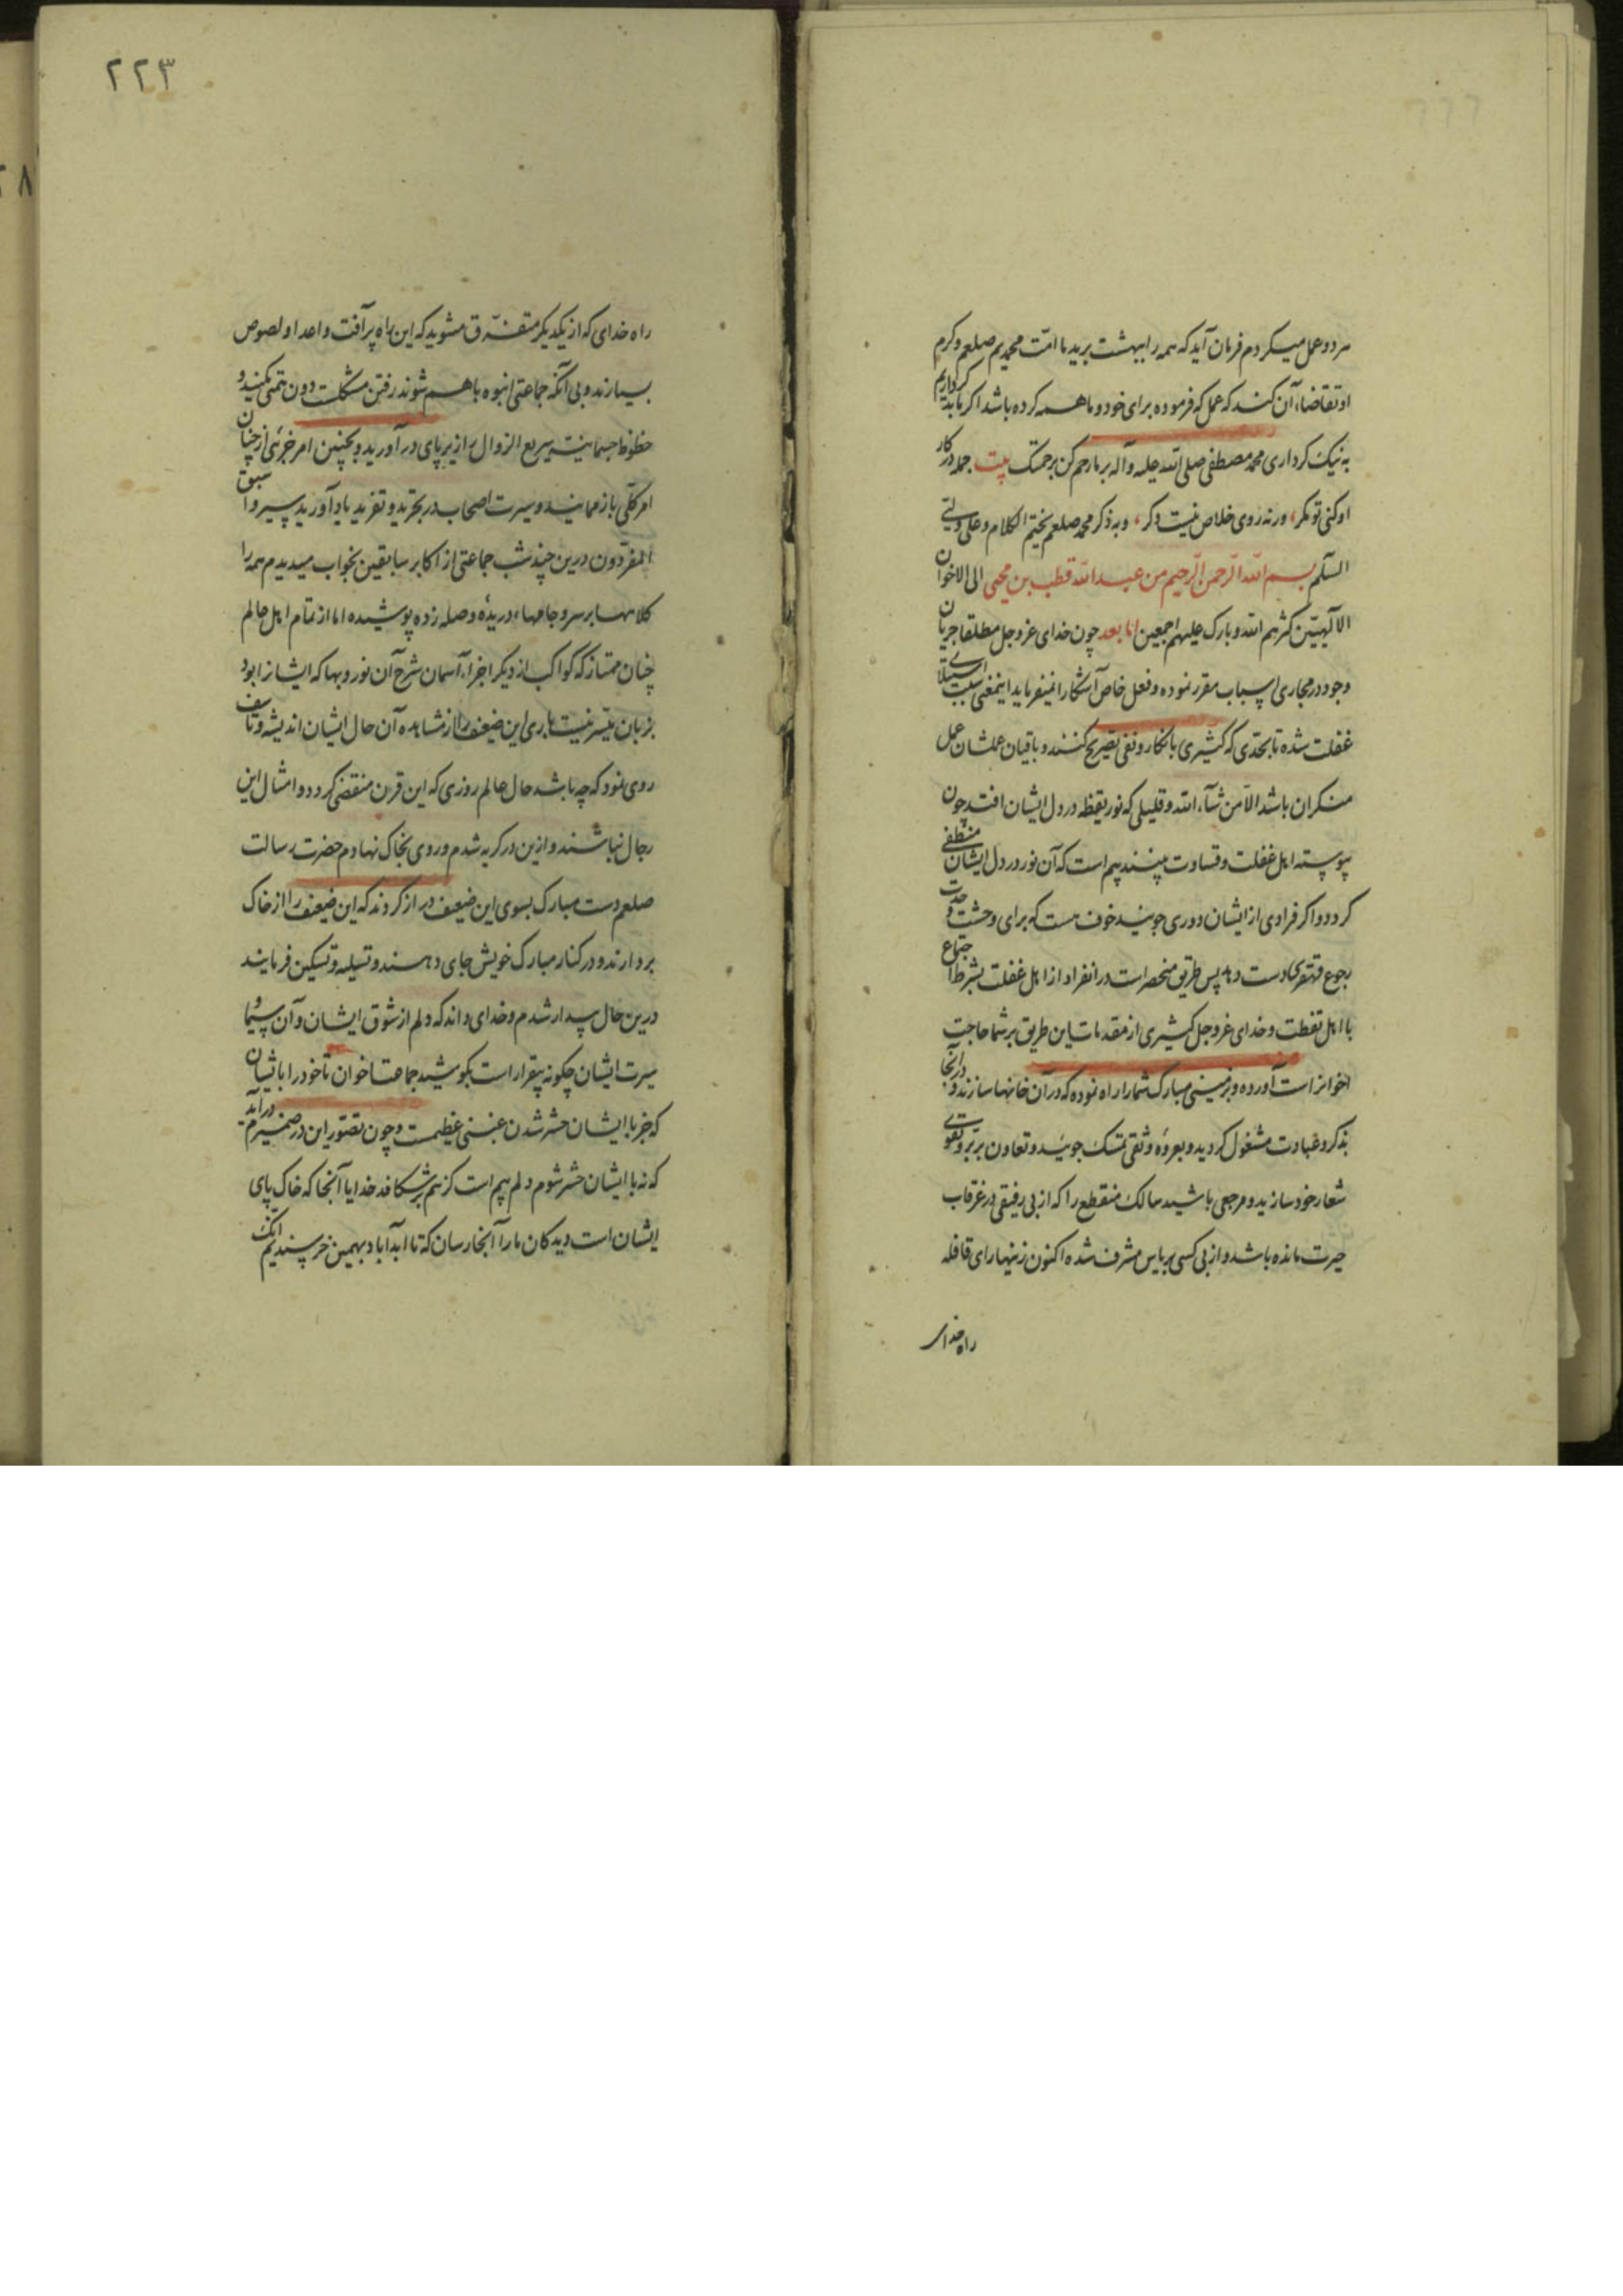 هر دو عمل میکردم فرمان آید که همه را ببهشت برید ما امّت محمدیم صلعم و کرم
او تقاضاء آن کند که عمل که فرموده برای خود و ما همه کرده باشد اکر ما بد کرداریم
به نیک کرداری محمد مصطفی صلی الله علیه و آله بر ما رحم کن برحمتک بیت جمله در کار
او کنی تو مکر، ورنه روی خلاص نیست دکر، و به ذکر محمد صلعم نختم الکلام و علی
السلم بسم الله الرّحمن الرّحیم من عبد الله قطب بن محیی الی الاخوان
الآلهیّین کثرهم الله و بارک علیهم اجمعین اما بعد چون خدای عزوجل مطلقا جریان
وجود در مجاری اسباب مقرر نموده و فعل خاص آشکارا نمیفرماید اینمعنی سبب استیلای
غفلت شده تا بحدّی که کثیری بانکار و نفی تصریح کنند و باقیان عملشان عمل
منکران باشد الّا من شآء الله و قلیلی که نور یقظه در دل ایشان افتد چون
پیوسته اهل غفلت و قساوت بینند بیم است که آن نور در دل ایشان منطفی
کردد و اکر فرادی از ایشان دوری جویند خوف هست که برای وحشت وحدت
رجوع قهقری دست دهد پس طریق منحصر است در انفراد از اهل غفلت بشرط اجتماع
با اهل تفطّن و خدای عزوجل کثیری از مقدمات این طریق بر شما جماعت
اخوان راست آورده و بزمینی مبارک شما را راه نموده که در آن خانها سازند و در آنجا
بذکر و عبادت مشغول کردید و بعروه وثقی تمسّک جوئید و تعاون بر برّ و تقوی
شعار خود سازید و مرجعی باشید سالک منقطع را که از بی رفیقی در غرقاب
حیرت مانده باشد و از بی کسی بر یاس مشرف شده اکنون زینهار ای قافله
راه خدای
۲۲۳
راه خدای که از یکدیکر متفرّق مشوید که این راه پر آفت و اعدا و لصوص
بسیارند و بی آنکه جماعتی انبوه باهم شوند رفتن مشکلست دون همّتی مکنید و
حظوظ جسمانیّه سریع الزوال را زیر پای در آورید و بچنین امر جزئی از چنان
امر کلّی باز ممانید و سیرت اصحاب در تجرید و تفرید یاد آورید سیروا سبق
المفرّدون درین چند شب جماعتی از اکابر سابقین بخواب میدیدم همه را
کلاهها بر سر و جامهاء دریده وصله زده پوشیده اما از تمام اهل عالم
چنان ممتاز که کواکب از دیکر اجزاء آسمان شرح آن نور و بها که ایشانرا بود
بزبان میسّر نیست باری این ضعیف را از مشاهده آن حال ایشان اندیشه و تاسف
روی نمود که چه باشد حال عالم روزی که این قرن منقضی کردد و امثال این
رجال نباشند و ازین در کریه شدم و روی بخاک نهادم حضرت رسالت
صلعم دست مبارک بسوی این ضعیف دراز کردند که این ضعیف را از خاک
بردارند و در کنار مبارک خویش جای دهند و تسلیه و تسکین فرمایند
درین حال بیدار شدم و خدای داند که دلم از شوق ایشان و آن سیما و
سیرت ایشان چکونه بیقرار است بکوشید جماعت اخوان تا خود را با ایشان
که جز با ایشان حشر شدن غبنی عظیمست و چون تصوّر این در ضمیرم در آید
که نه با ایشان حشر شوم دلم بیم است کز هم بر شکافد خدایا آنجا که خاک پای
ایشان است دیدکان ما را آنجا رسان که تا ابد آباد بهمین خرسندیم انک